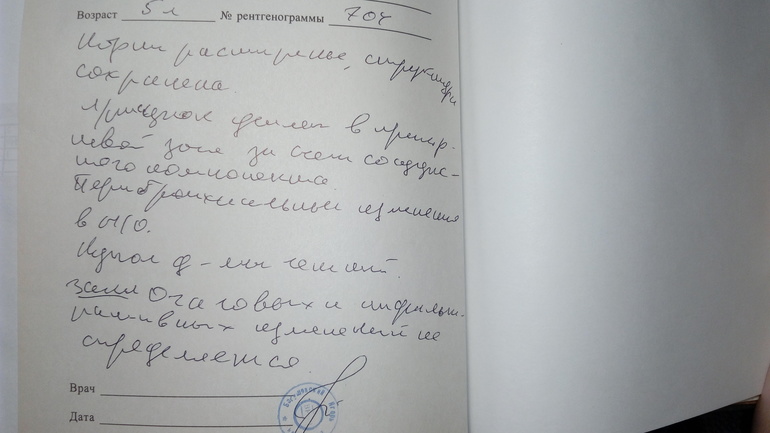 Возраст 5 л № рентгенограммы 704
Корни расширенные, структура
сохранена.
в прикор-
невой зоне за счет сосудис-
того компонента.
Перибронхиальные изменения
в н/о.
Купол д-мы четкий.
Закл Очаговых и инфильт-
ративных изменений не
определяется.
Врач
Дата